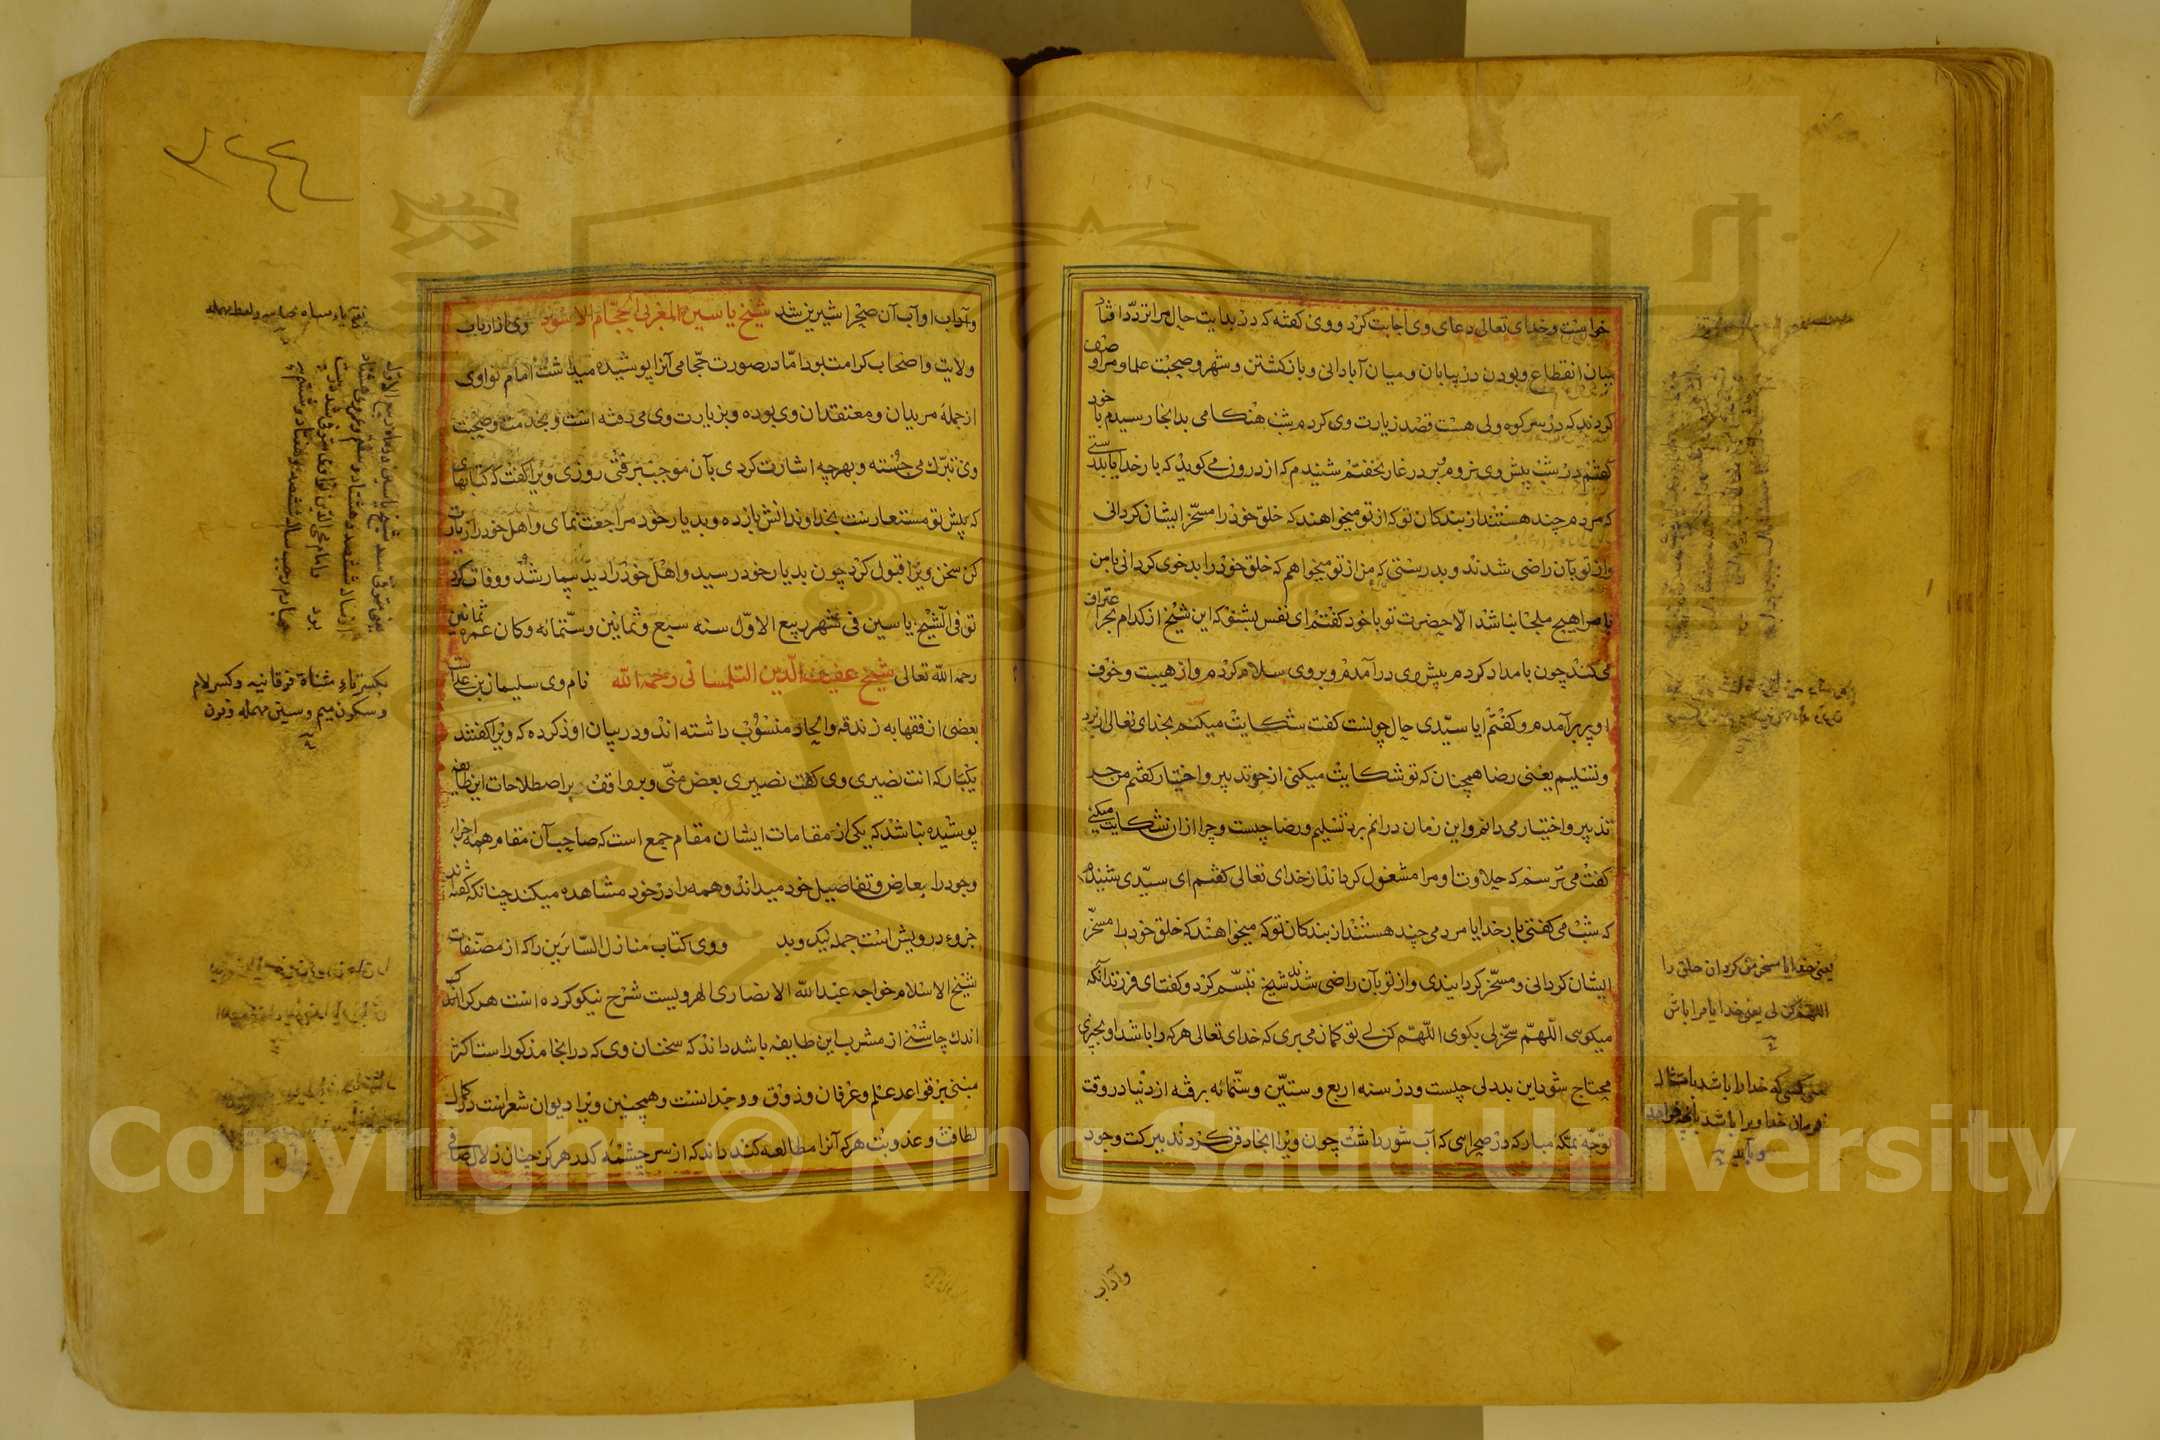 خواست و خدای تعالی دعای وی اجابت کرد و وی کفته که در بدایت حال مرا تردد افتاد
میان انقطاع و بودن در بیابان و میان آبادانی و بازکشتن و شهر و صحبت علما و مرا وصف
کردند که در سر کوه ولی هست قصد زیارت وی کردم شب هنکامی بدانجا رسیدم با خود
کفتم در شب پیش وی نروم بر در غار بخفتم شنیدم که از درون می کوید که بار خدایا بدرستی
که مردم چند هستند از بندکان تو که از تو میخواهند که خلق خود را مسخر ایشان کردانی
و از تو بآن راضی شدند و بدرستی که من از تو میخواهم که خلق خود را بدخوی کردانی با من
تا مرا هیچ ملجا نباشد الا حضرت تو با خود کفتم ای نفس بشنو که این شیخ از کدام بحر اغتراف
می کند چون بامداد کردم پیش وی درآمدم و بر وی سلام کردم و از هیبت و خوف
او پر برآمدم و کفتم ایا سیدی حال چونست کفت شکایت میکنم بخدای تعالی از برد
و تسلیم یعنی رضا همچنان که تو شکایت میکنی از حر تدبیر و اختیار کفتم من حر
تدبیر و اختیار می دانم و این زمان در انم برد تسلیم و رضا چیست و چرا ازان شکایت میکنی
کفت می ترسم که حلاوت او مرا مشغول کرداند از خدای تعالی کفتم ای سیدی شنیدم
که شب می کفتی بار خدایا مردمی چند هستند از بندکان تو که میخواهند که خلق خود را مسخر
ایشان کردانی و مسخر کردانیدی و از تو بآن راضی شدند شیخ تبسم کرد و کفت ای فرزند آنکه
میکویی اللهم سخر لی بکوی اللهم کن لی تو کمان می بری که خدای تعالی هر که را باشد او بچیزی
محتاج شود این بددلی چیست و در سنه اربع و ستین و ستمائه برفته از دنیا در وقت
توجه بمکه مبارکه در صحرایی که آب شور داشت چون ویرا انجا دفن کردند ببرکت وجود
وآداب
یعنی خدایا مسخر من کردان خلق را
اللهم کن لی یعنی خدایا مرا باش
یعنی کسی که خدا را باشد بامتثال
فرمان خدا ویرا باشد بانچه خواهد
و باید
وآداب او آب آن صحرا شیرین شد شیخ یاسین المغربی الحجام الاسود وی از ارباب
ولایت و اصحاب کرامت بود اما در صورت حجامی آنرا پوشیده میداشت امام نواوی
از جمله مریدان و معتقدان وی بوده و بزیارت وی می رفته است و بخدمت و صحبت
وی تبرک می جسته و بهرچه اشارت کردی بآن موجب برفتی روزی ویرا کفت که کتابهای
که پیش تو مستعارست بخداوندانش بازده و بدیار خود مراجعت نمای و اهل خود را زیارت
کن سخن ویرا قبول کرد چون بدیار خود رسید و اهل خود را دید بیمار شد و وفات کرد
توفی الشیخ یاسین فی شهر ربیع الاول سنه سبع و ثمانین و ستمائه وکان عمره ثمانین
رحمه الله تعالی شیخ عفیف الدین التلمسانی رحمه الله نام وی سلیمان بن علیست
بعضی از فقها به زندقه و الحاد منسوب داشته اند و در بیان او ذکر کرده که ویرا کفتند
یکبار که انت نصیری وی کفت نصیری بعض منی و بر واقف بر اصطلاحات این طایفه
پوشیده نباشد که یکی از مقامات ایشان مقام جمع است که صاحب آن مقام همه اجزای
وجود را بعارض و تفاصیل خود میداند و همه را در خود مشاهده میکند چنانکه کفته اند
جزوء درویش است جمله نیک و بد و وی کتاب منازل السائرین را که از مصنفات
شیخ الاسلام خواجه عبدالله الانصاری الهرویست شرح نیکو کرده است هر کرا اند
اندک چاشنی از مشرب این طایفه باشد داند که سخنان وی که درانجا مذکورست اکثر
مبنی بر قواعد علم و عرفان و ذوق و وجدانست و همچنین ویرا دیوان شعراست در کمال
لطافت و عذوبت هر که آنرا مطالعه کند داند که از سر چشمه کدر هرکز چنان زلال صافی
بکسر تاء مثناة فوقانیه و کسر لام
و سکون میم و سین مهمله و نون
یعنی متوفی شد شیخ یاسین در ماه ربیع الاول
از سال ششصد و هشتاد و هفتم و عمر وی هشتاد
بود و امام محی الدین نواوی متوفی شد در شب
چهارم رجب سال ششصد و هفتاد و ششم
٢٤٤
Copyright © King Saud University